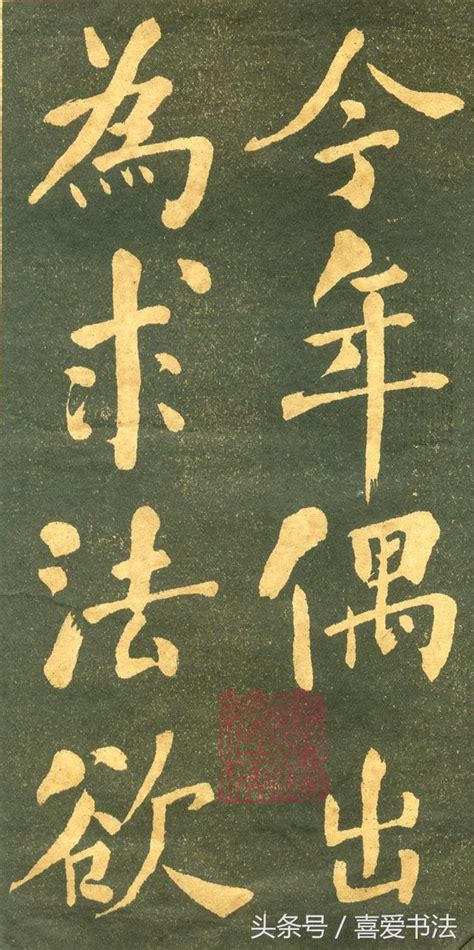 今年偶出
為求法欲
头条号 / 喜爱书法